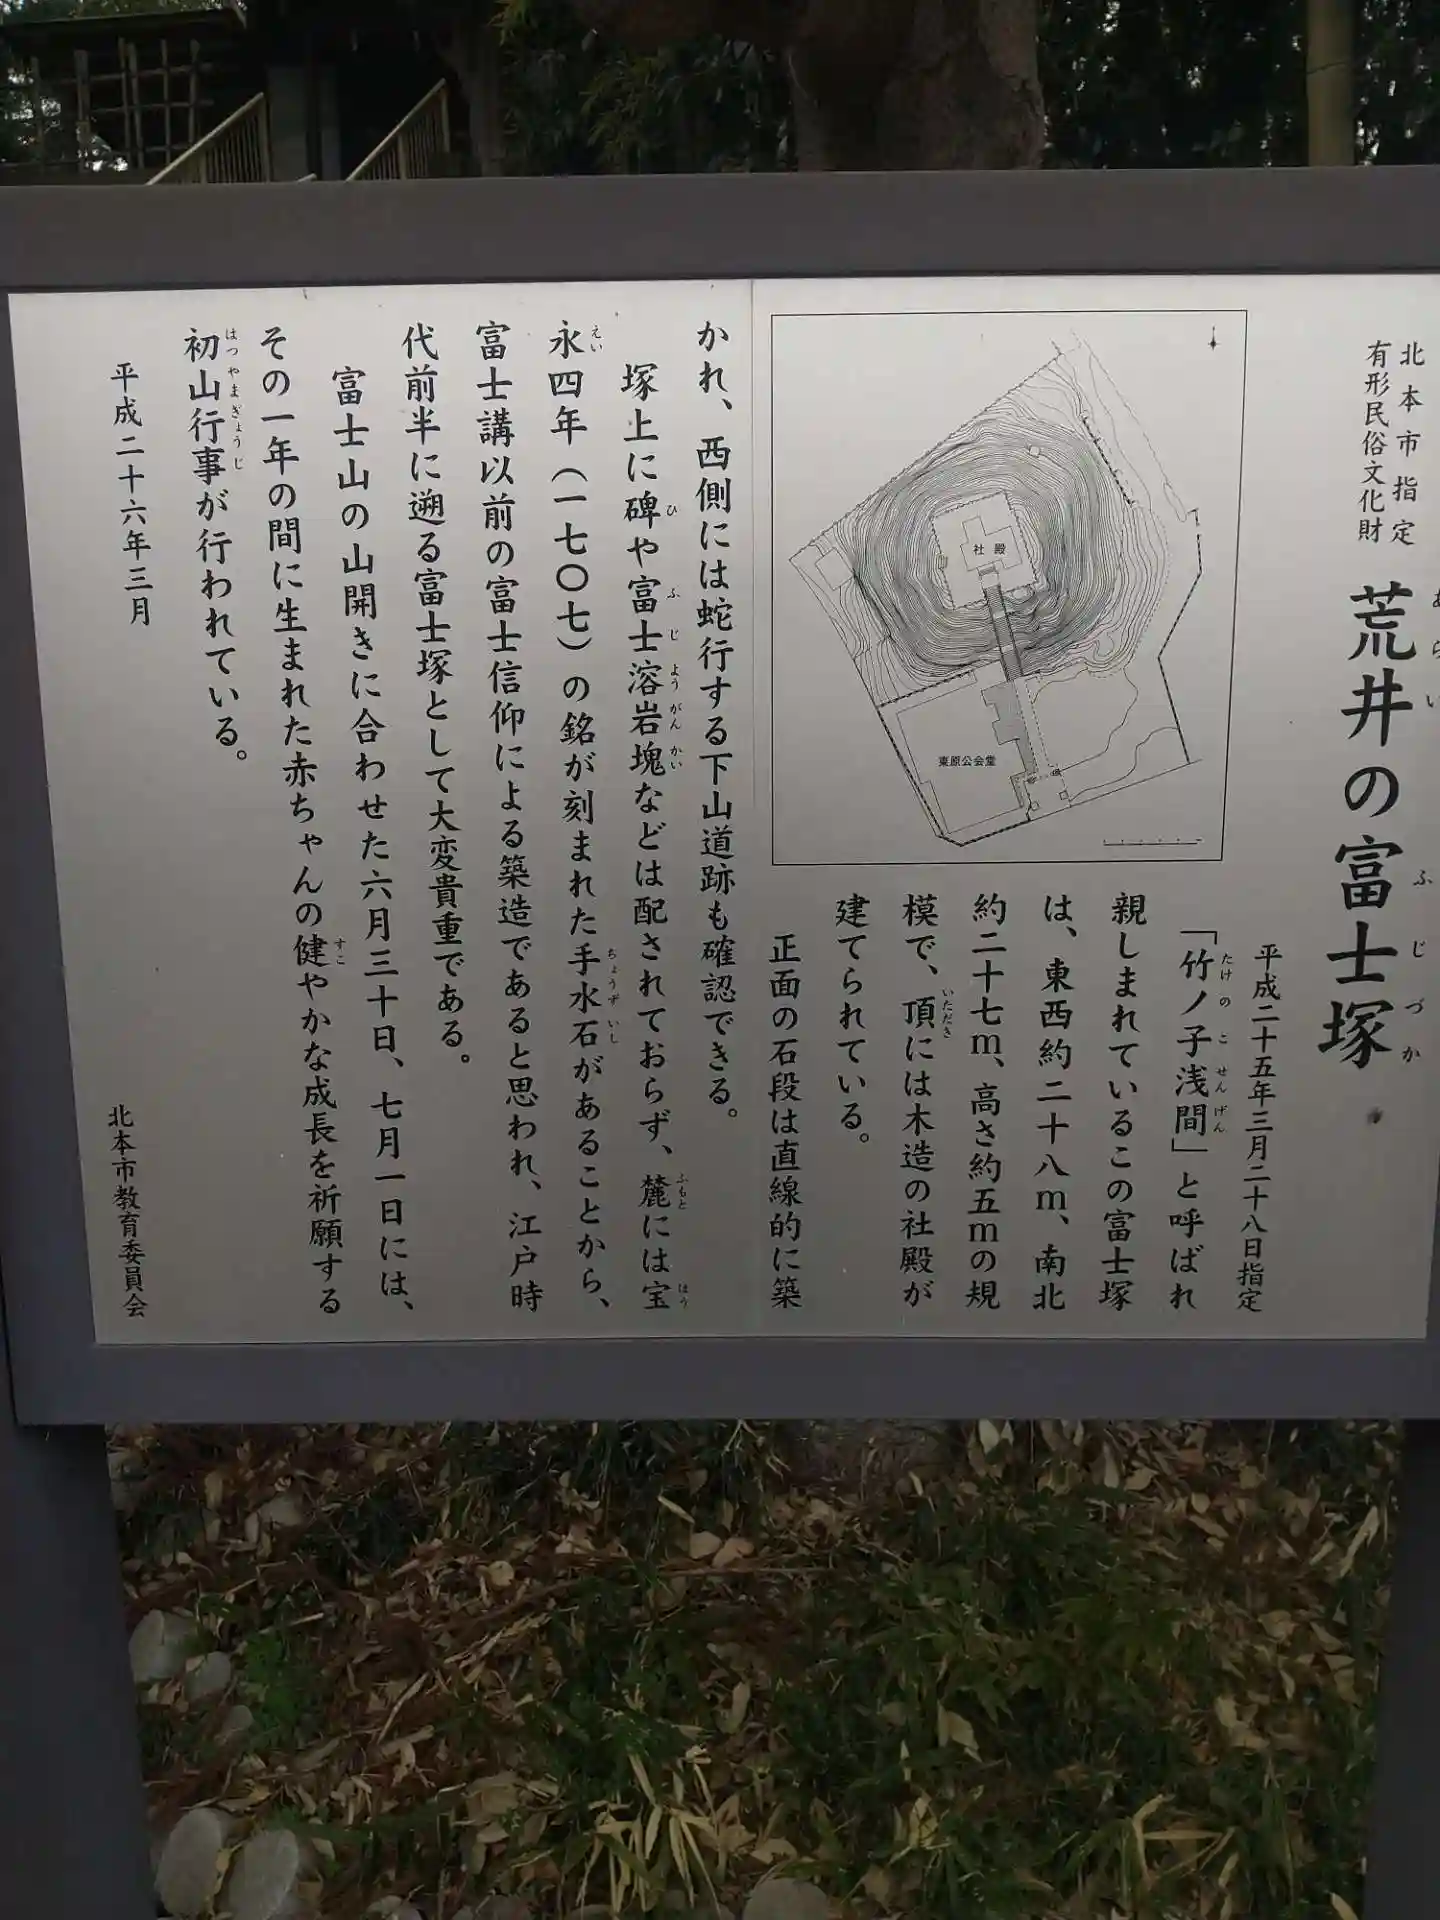 北本市指定
有形民俗文化財
荒井の富士塚
あらい ふじづか
平成二十五年三月二十八日指定
「竹ノ子浅間」と呼ばれ
たけのこせんげん
親しまれているこの富士塚
は、東西約二十八m、南北
約二十七m、高さ約五mの規
模で、頂には木造の社殿が
いただき
建てられている。
正面の石段は直線的に築
かれ、西側には蛇行する下山道跡も確認できる。
塚上に碑や富士溶岩塊などは配されておらず、麓には宝
ひ ふじようがんかい ふもと ほう
永四年(一七〇七)の銘が刻まれた手水石があることから、
えい ちょうずいし
富士講以前の富士信仰による築造であると思われ、江戸時
代前半に遡る富士塚として大変貴重である。
富士山の山開きに合わせた六月三十日、七月一日には、
その一年の間に生まれた赤ちゃんの健やかな成長を祈願する
すこ
初山行事が行われている。
はつやまぎょうじ
平成二十六年三月
北本市教育委員会
社殿
東原公会堂